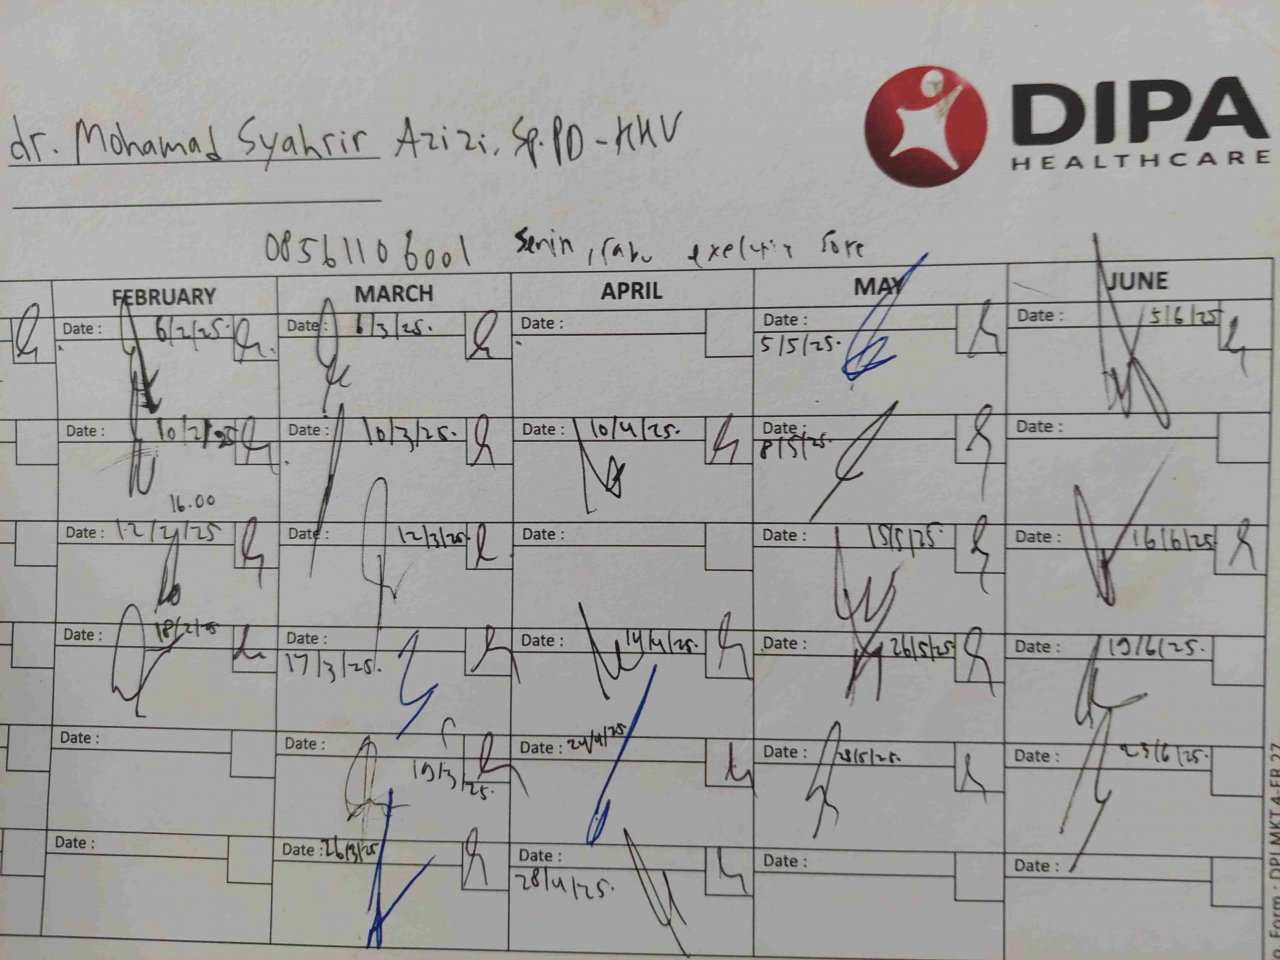 DIPA
HEALTHCARE
dr. Mohamad Syahrir Azizi, Sp.PD-KKV
08561106001 Senin, rabu sore
FEBRUARY MARCH APRIL MAY JUNE
Date : 6/2/25. Date : 6/3/25. Date : Date : 5/5/25. Date : 5/6/25
Date : 10/2/25 Date : 10/3/25. Date : 10/4/25. Date : 8/5/25. Date :
16.00
Date : 12/2/25 Date : 12/3/25 Date : Date : 15/5/25. Date : 16/6/25
Date : 18/2/25 Date : 17/3/25. Date : 14/4/25. Date : 26/5/25 Date : 19/6/25.
Date : Date : 19/3/25. Date : 24/4/25 Date : 28/5/25. Date : 23/6/25.
Date : Date : 26/3/25 Date : 28/4/25. Date : Date :